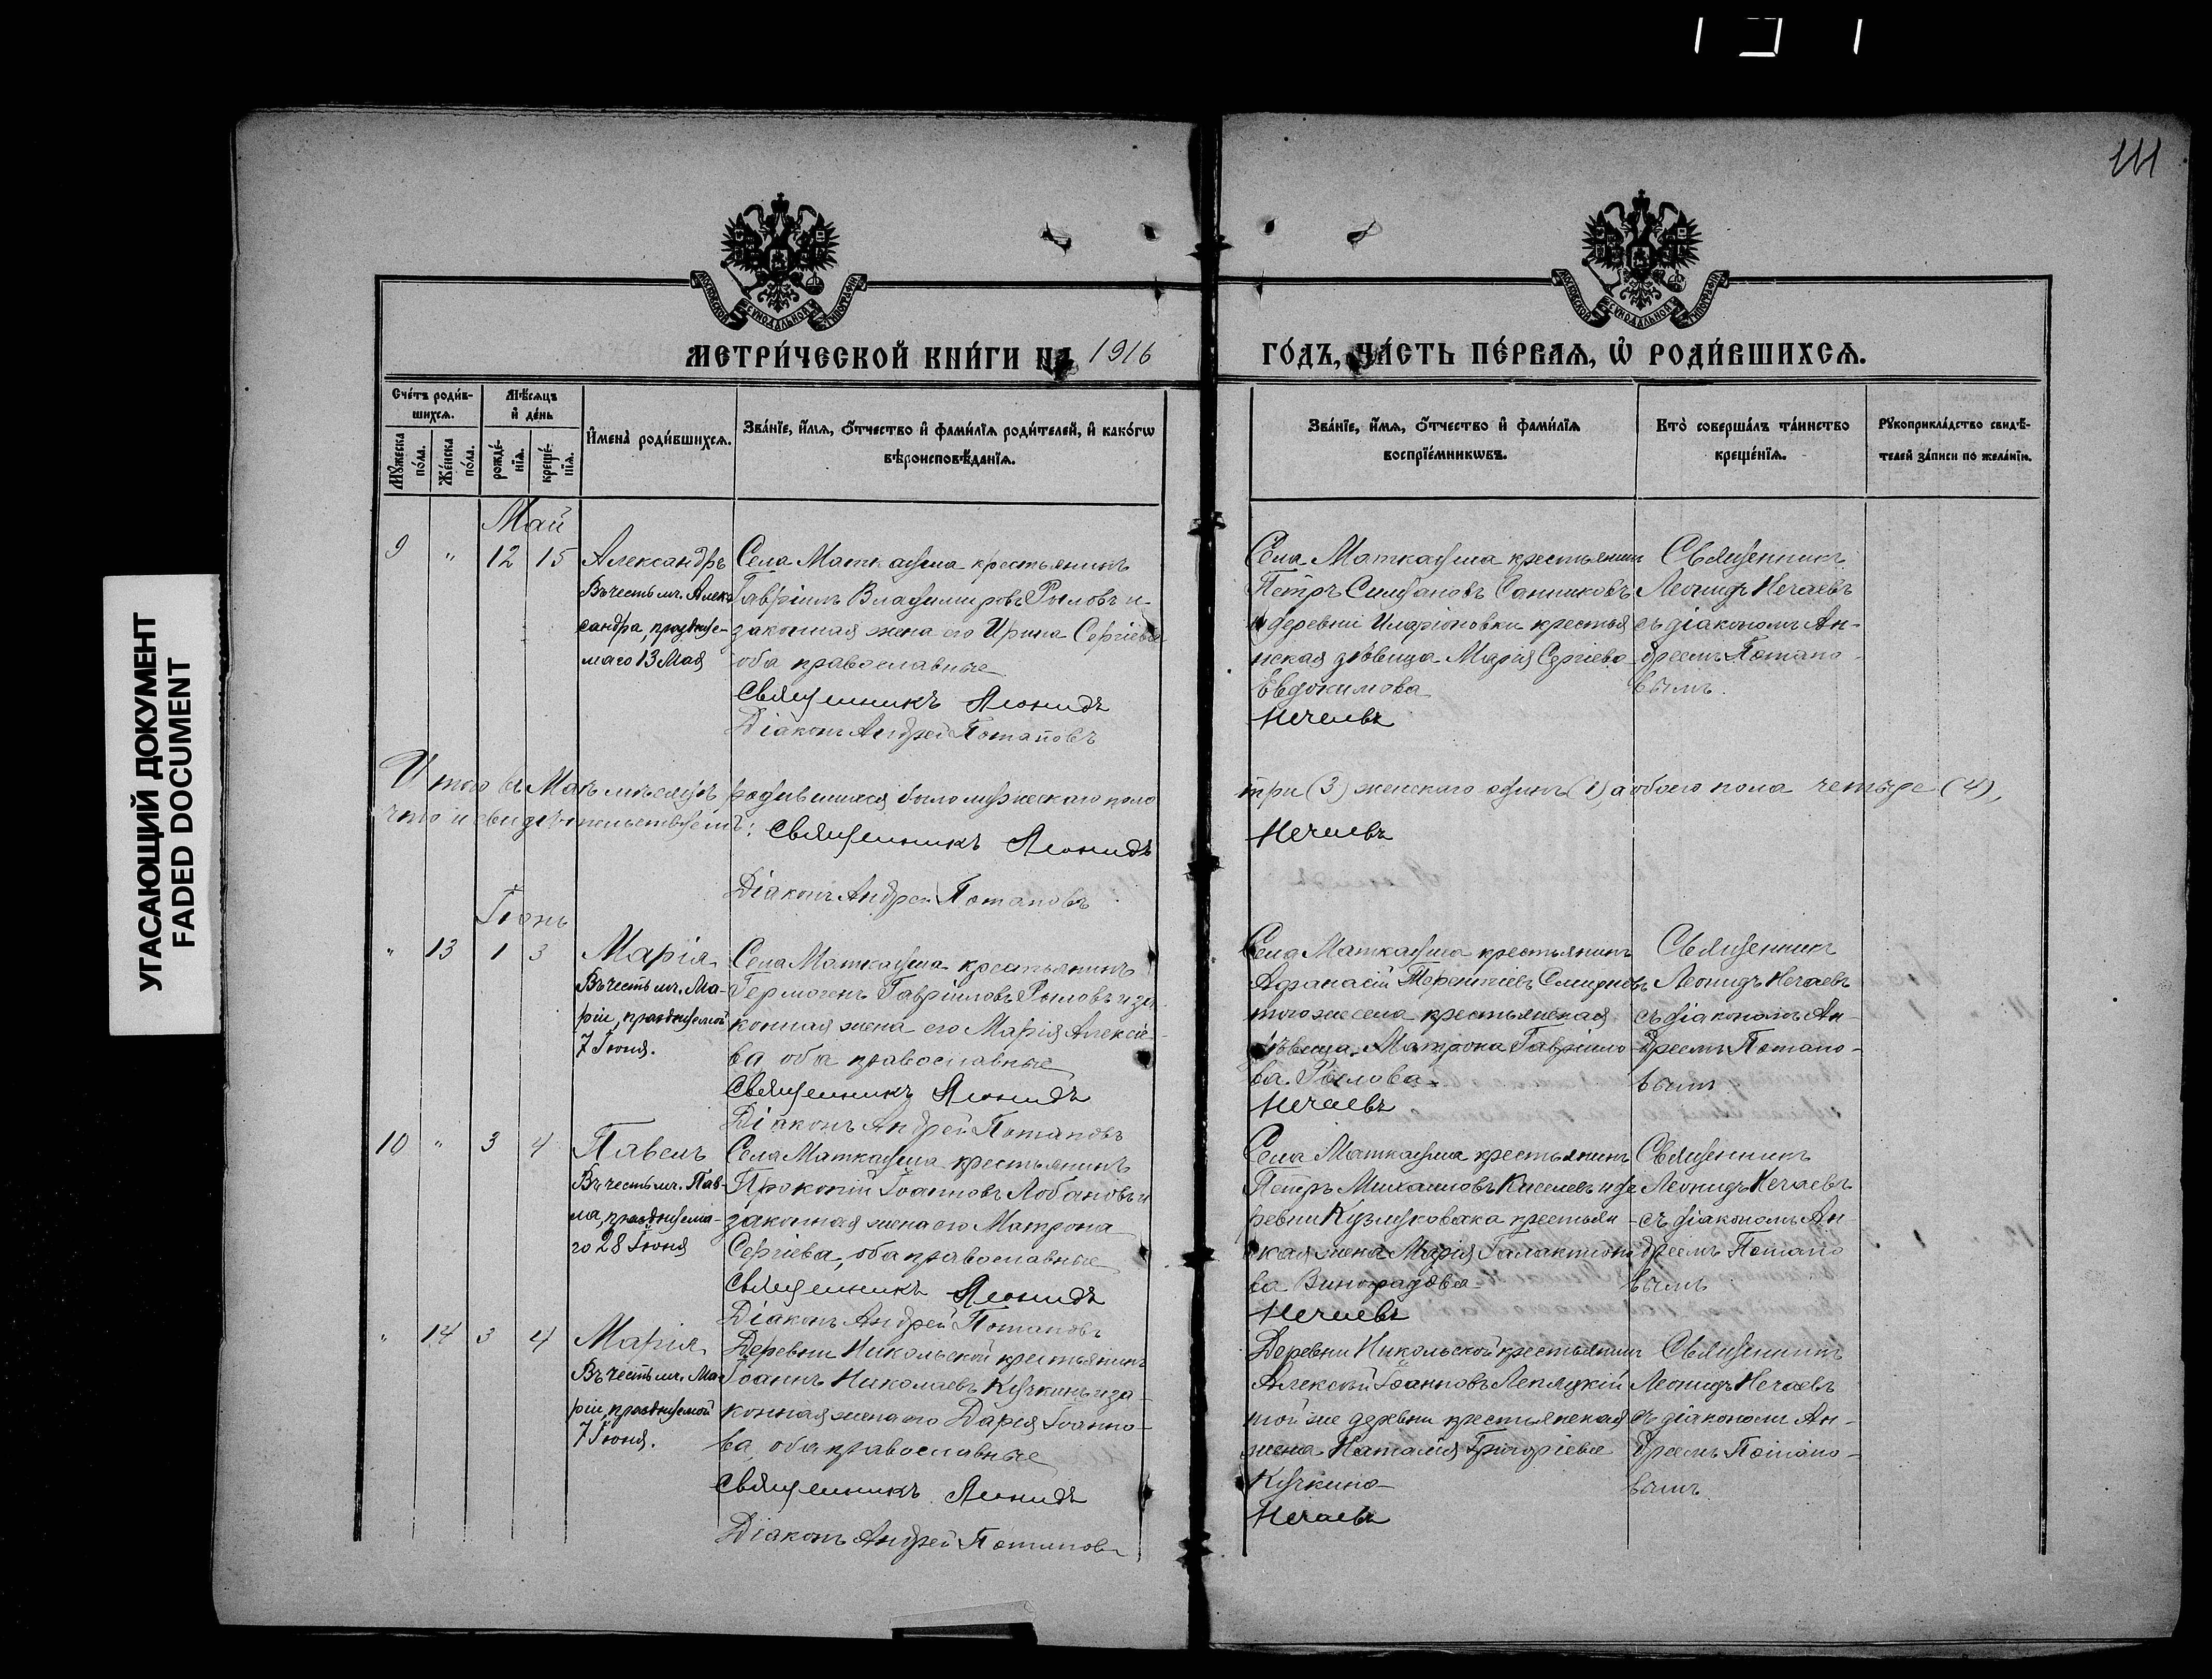 111
УГАСАЮЩИЙ ДОКУМЕНТ
FADED DOCUMENT
МОСКОВСКОЙ СѴНОДАЛЬНОЙ ТИПОГРАФІИ
МОСКОВСКОЙ СѴНОДАЛЬНОЙ ТИПОГРАФІИ
МЕТРИ́ЧЕСКОЙ КНИ́ГИ НА 1916
ГО́ДЪ, ЧА́СТЬ ПЕ́РВАЯ, Ѡ РОДИ́ВШИХСЯ.
Сче́тъ роди́вшихся.
Мѣ́сяцъ и де́нь
Му́жеска по́ла.
Же́нска по́ла.
рожде́нія.
креще́нія.
Имена̀ роди́вшихся.
Зва́ніе, и́мя, о́тчество и фами́лія роди́телей, и како́гѡ
вѣроисповѣ́данія.
Зва́ніе, и́мя, о́тчество и фами́лія
воспріе́мникѡвъ.
Кто̀ соверша́лъ та́инство
креще́нія.
Рукоприкла́дство свидѣ́-
телей за́писи по жела́нію.
Май
9 " 12 15
Александръ
Въ честь мч. Алек-
сандра, празднуе-
маго 13 Мая
Села Маткауша крестьянинъ
Гавріилъ Владимировъ Рыловъ и
законная жена его Ирина Сергіева
оба православные
Священникъ Леонидъ
Діаконъ Андрей Потаповъ
Села Маткауша крестьянинъ
Петръ Санниковъ
и деревни Иларіоновки крестья-
нская дѣвица Марія Сергіева
Евдокимова
Нечаевъ
Священникъ
Леонидъ Нечаевъ
съ діакономъ Ан-
дреемъ Потапо-
вымъ.
Итого въ Маѣ мѣсяцѣ родившихся было мужескаго пола
три (3) женскаго одинъ (1) а обоего пола четыре (4),
что и свидѣтельствуемъ: Священникъ Леонидъ
Нечаевъ
Діаконъ Андрей Потаповъ
Іюнь
" 13 1 3
Марія
Въ честь мч. Ма-
ріи, празднуемой
7 Іюня.
Села Маткауша крестьянинъ
Гермогенъ Гавріиловъ Рыловъ и за-
конная жена его Марія Алексіе-
ва оба православные
Священникъ Леонидъ
Діаконъ Андрей Потаповъ
Села Маткауша крестьянинъ
Афанасій Терентіевъ Смирновъ
того же села крестьянская
дѣвица Матрона Гавріило-
ва Рылова
Нечаевъ
Священникъ
Леонидъ Нечаевъ
съ діакономъ Ан-
дреемъ Потапо-
вымъ
10 " 3 4
Павелъ
Въ честь мч. Пав-
ла, празднуема-
го 28 Іюня
Села Маткауша крестьянинъ
Прокопій Іоанновъ Лобановъ и
законная жена его Матрона
Сергіева, оба православные
Священникъ Леонидъ
Діаконъ Андрей Потаповъ
Села Маткауша крестьянинъ
Петръ Михаиловъ Киселевъ и де-
ревни крестьян-
ская жена Марія Галактіоно-
ва Виноградова
Нечаевъ
Священникъ
Леонидъ Нечаевъ
съ діакономъ Ан-
дреемъ Потапо-
вымъ
" 14 3 4
Марія
Въ честь мч. Ма-
ріи, празднуемой
7 Іюня.
Деревни Никольской крестьянинъ
Іоаннъ Николаевъ Кучкинъ и за-
конная жена его Дарія Іоанно-
ва, оба православные
Священникъ Леонидъ
Діаконъ Андрей Потаповъ
Деревни Никольской крестьянинъ
Алексій Іоанновъ
той же деревни крестьянская
жена Наталія Григоріева
Кучкина
Нечаевъ
Священникъ
Леонидъ Нечаевъ
съ діакономъ Ан-
дреемъ Потапо-
вымъ